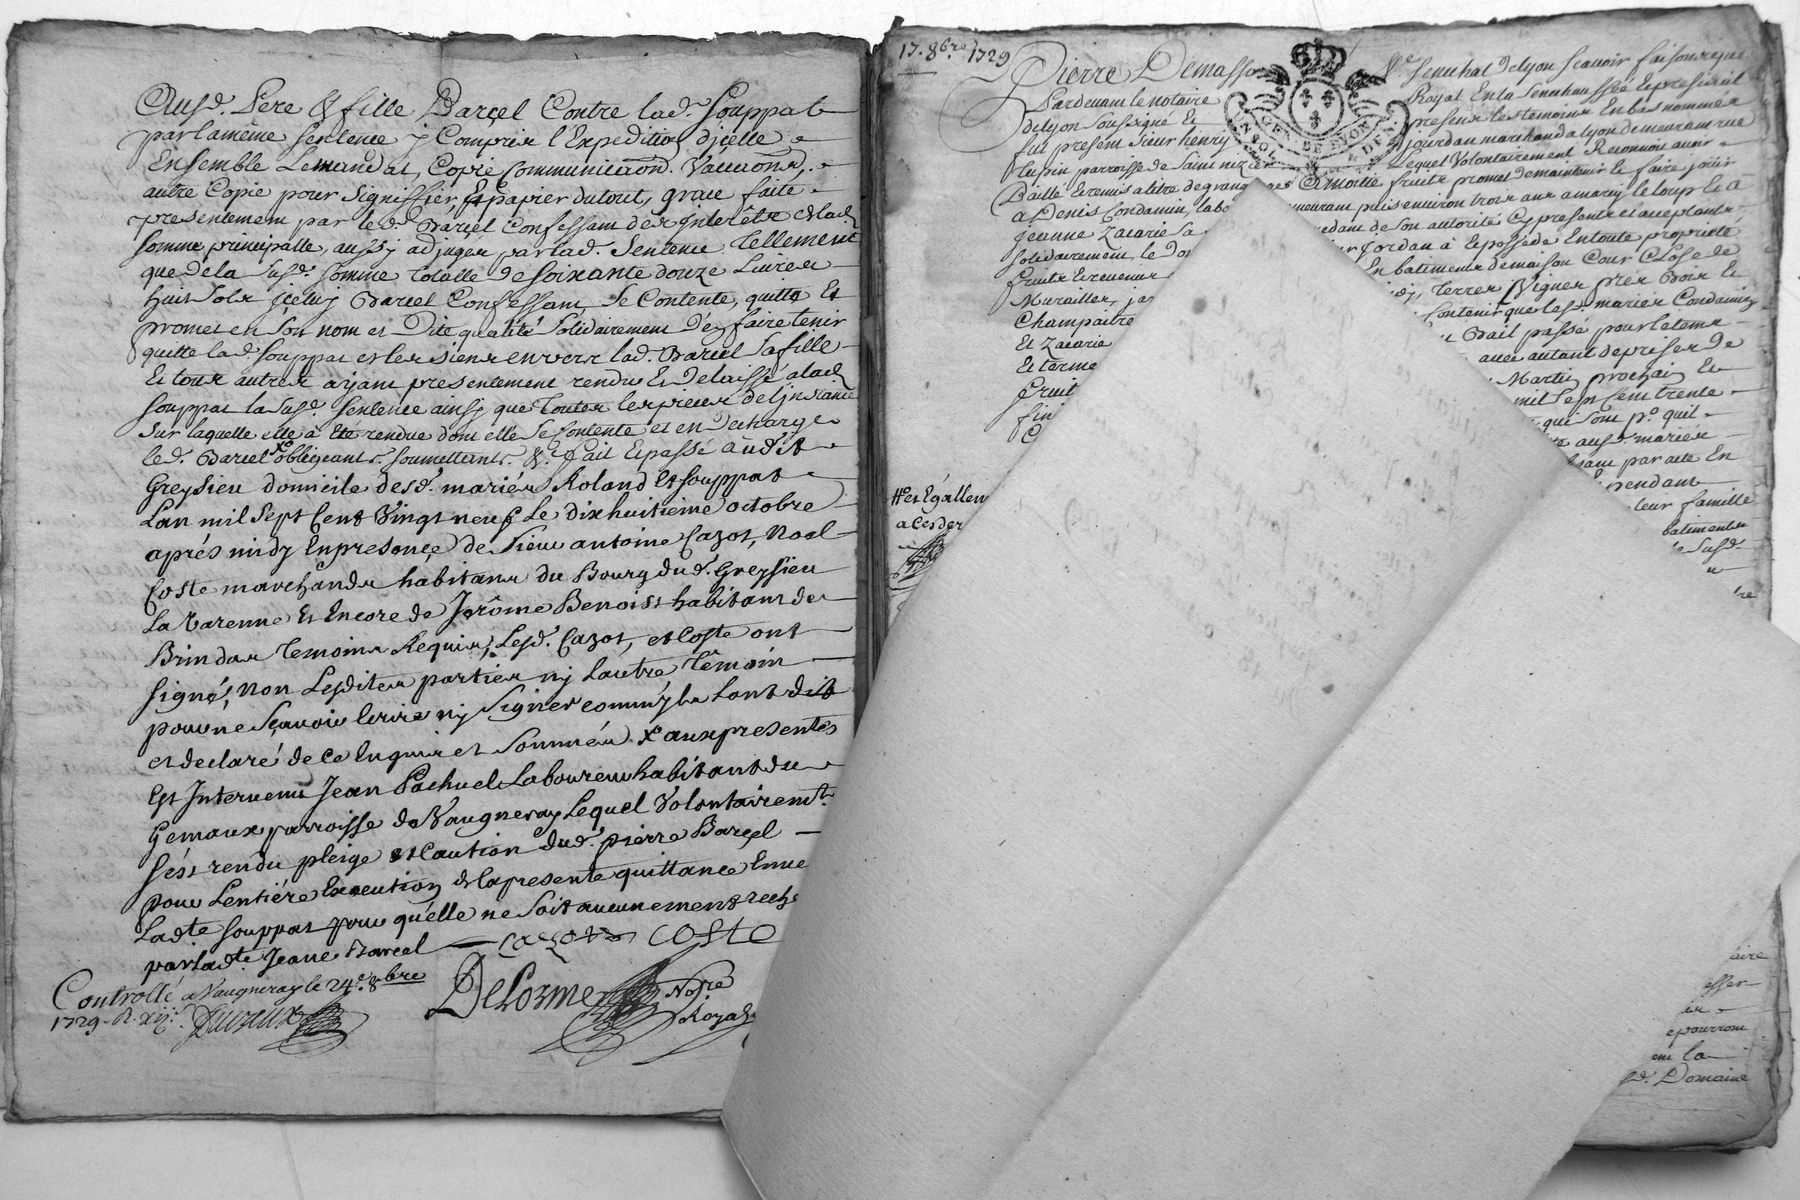 Ausd. Pere & fille Barcel Contre lad. Souppat
par la même Sentence y Compris l'Expedition d'jcelle
Ensemble Le mandat, Copie Communicaõn. Vaccaõns,
autre Copie pour Signiffier, Et papier du tout, grace faite
presentement par led. Barcel Confessant des jnterêts de lad.
Somme principalle, aussy adjugez par lad. Sentence Tellement
que de la Susd. Somme totalle de Soixante douze Livres
huit Sols jceluy Barcel Confessant Se Contente, quitte Et
promet en Son nom et Dite qualité Solidairement D'en faire tenir
quitte lad. Souppat et les siens envers lad. Barcel Sa fille
Et tous autres ayant presentement rendu Et Delaissé a lad.
Souppat la Susd. Sentence ainsy que toutes les pieces de l'jnstance
Sur laquelle elle a Eté rendue dont elle Se Contente et en Decharge
led. Barcel obligeants. Soumettants. &. fait Et passé audit
Greysieu domicile desd. mariés Roland Et Souppat
Lan mil Sept Cent Vingt neuf Le dixhuitieme octobre
aprés midy En presence de Sieur antoine Cazot, Noel
Coste marchands habitans du Bourg dud. Greysieu
La Varenne Et Encore de Jerôme Benoist habitant de
Brindas Temoins Requis, Lesd. Cazot, et Coste ont
Signé, Non Lesdites parties nj Lautre Têmoin
pour ne Sçavoir Ecrire nj Signer comm'jls Lont dit
et declaré de ce Enquis et Sommés. X aux presentes
Est Intervenu Jean Pachuel Laboureur habitant du
Gemaux parroisse de Vaugneray Lequel Volontairemt.
Sést rendu pleige et Caution dud. pierre Barcel
pour Lentiére Execution de la presente quittance Enve
Ladte Souppat pour qu'elle ne Soit aucunement rech
par Ladte. Jeane Barcel
Cazot COSTE
Controllé a Vaugneray le 24e. 8bre
1729. R. xijs.
DeLorme Nore
Royal
17. 8bre 1729
Pierre Demasso
Vd Senechal de Lyon Scavoir faisons que
Pardevant le Notaire
Royal En la Senechaussée Et presidial
de Lyon Soussigné Et
presens les temoins En bas nommés
fut present Sieur henry
jourdan marchand a lyon demeurant rue
Lupin parroisse de Saint nizier
Lequel Volontairement Reconnoit avoir
Baillé Et remis a titre de grangeage
A moitie fruits promet de maintenir Et faire jouir
a Denis Condamin, labo
meurant puis environ trois ans a marcy le loup Et a
Jeanne Zacarie Sa
dant de Son autorité Cy presents et acceptants
Solidairement, le Do
ur Jordan à Et possede En toute proprieté
fruits Et revenus
En batiments de maison Cour Close de
Murailles, ja
Terres Vignes prés Bois Et
Champaitre
Contenir que lesd. mariés Condamin
Et Zacarie
Bail passé pour le tems
Et terme
avec autant de prises de
fruit
Martin prochain Et
fin
mil Sept Cent trente
qui Sont po. quil
ausd. mariés
ant par acte En
pendant
leur famille
batiments
Susd.
#et Egallem
a Cesder
aire
e pourront
la
d. Domaine